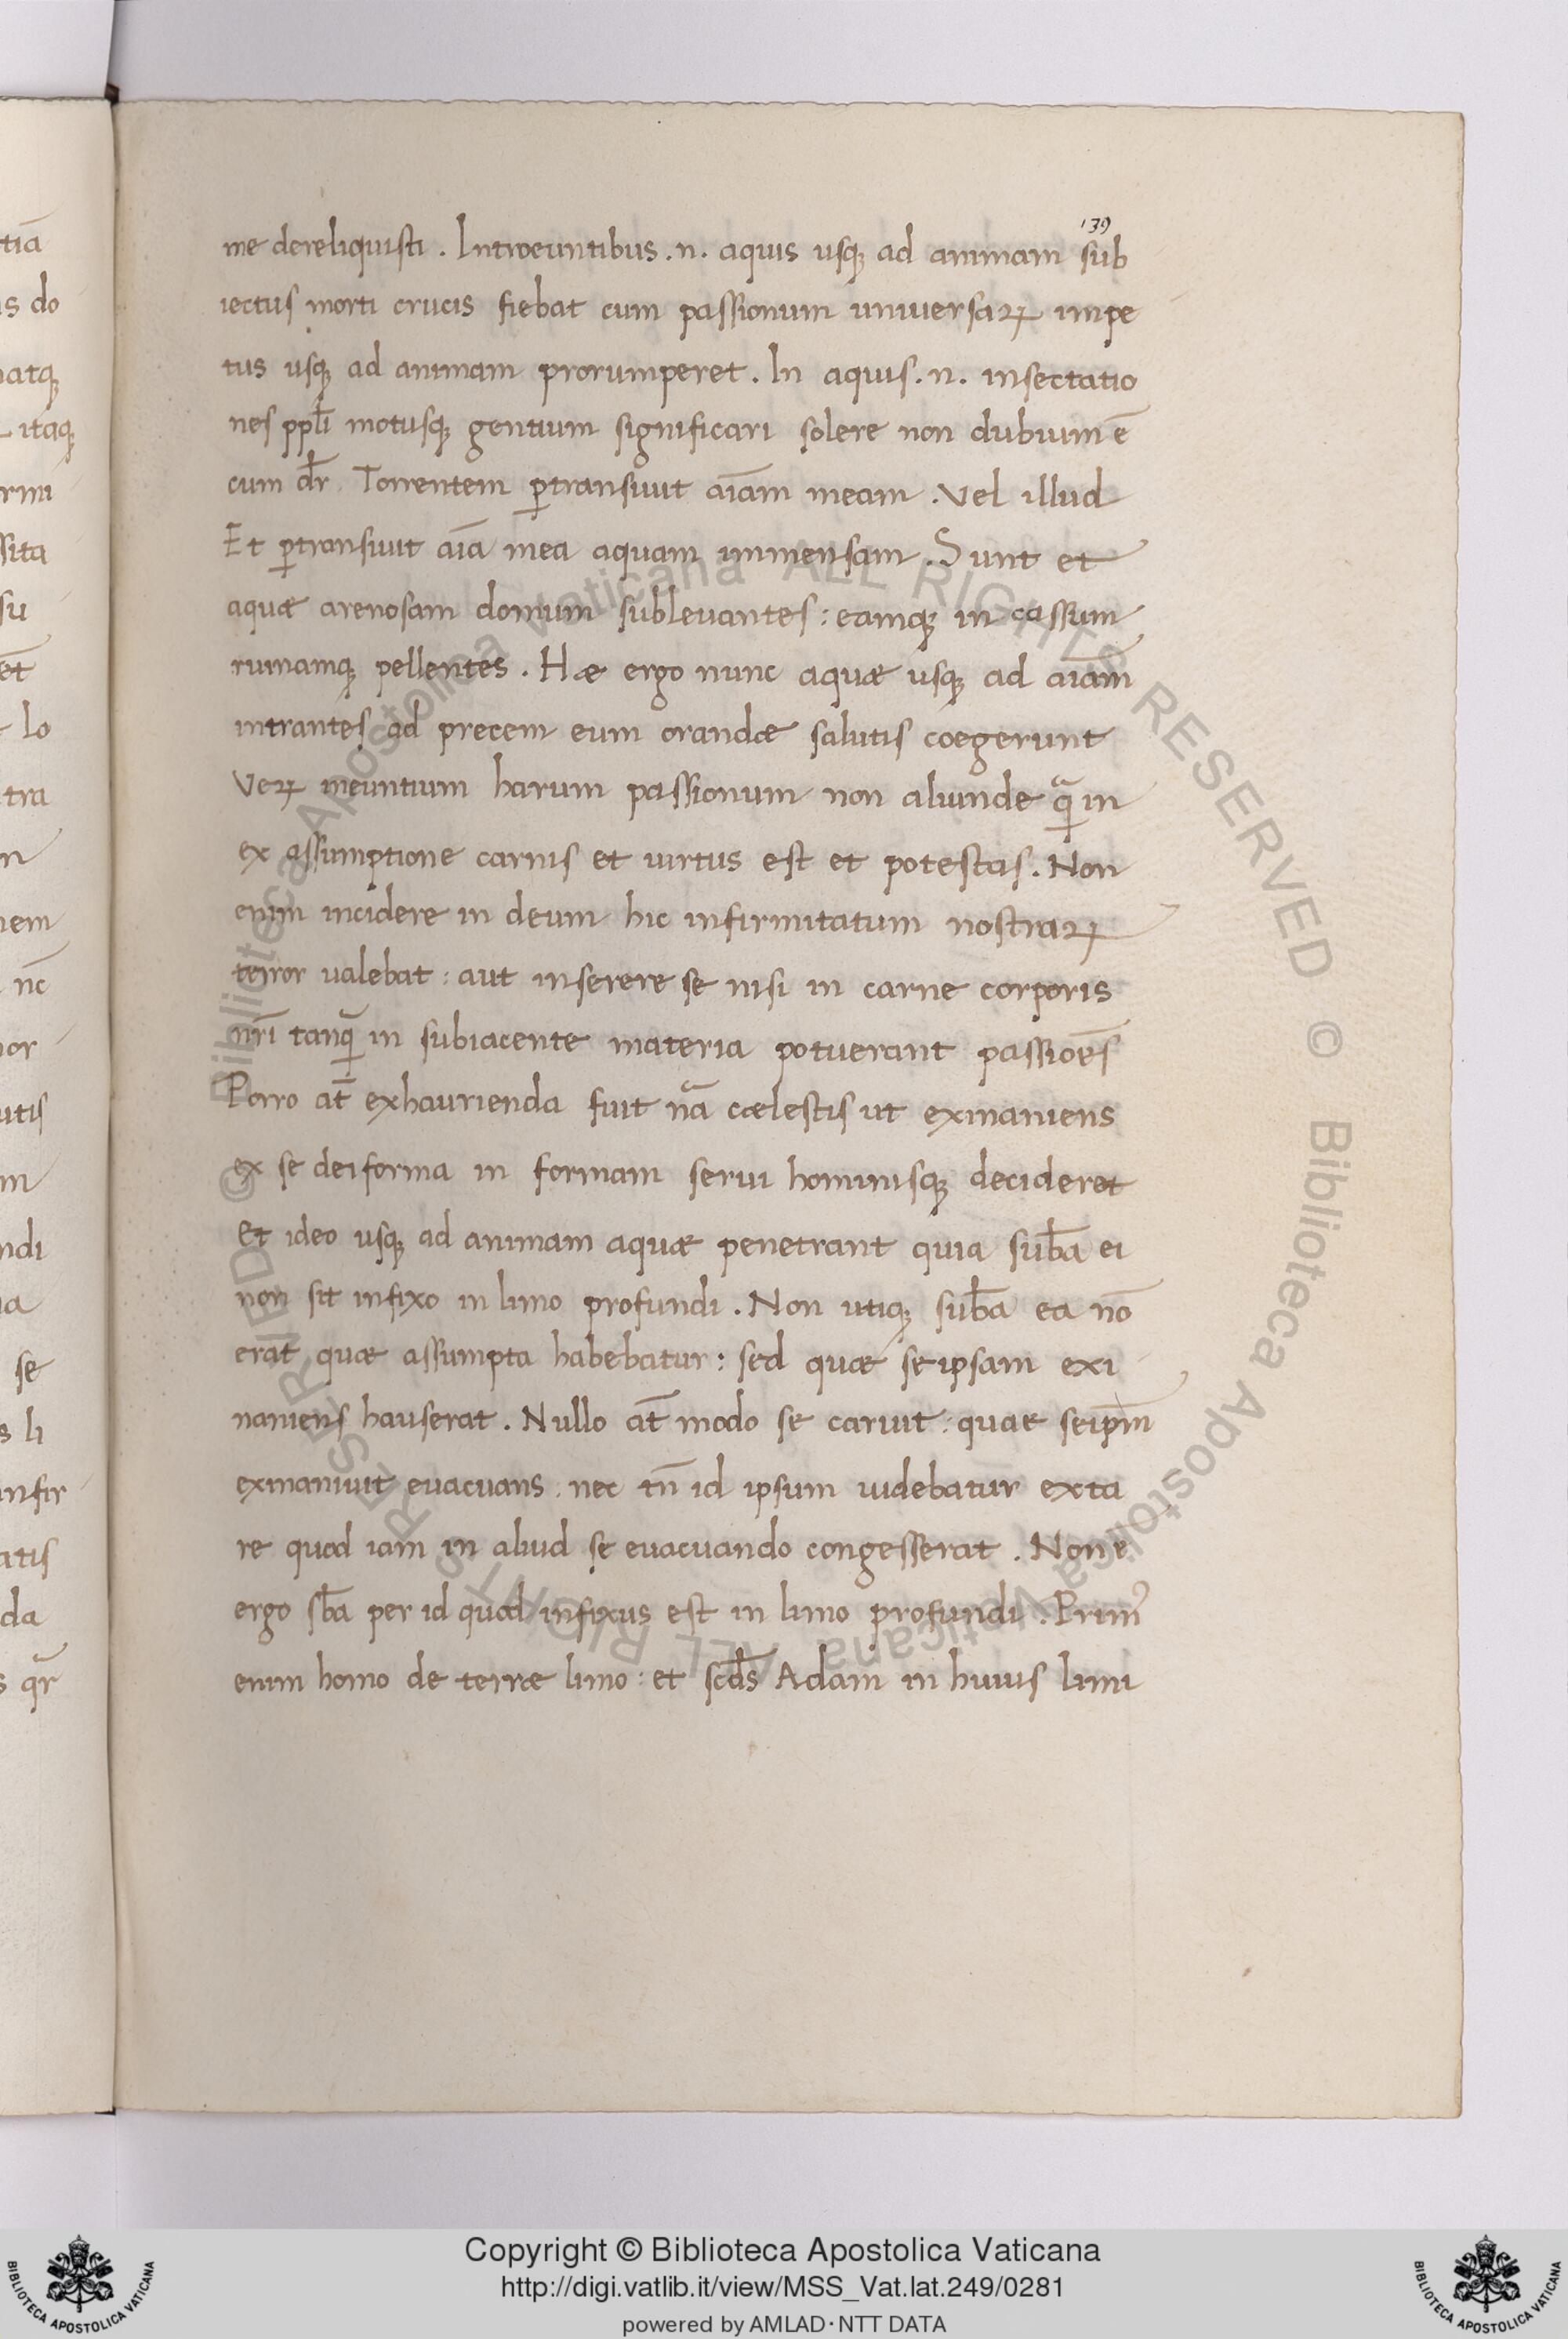 139
me dereliquisti . Introeuntibus .n. aquis usq; ad animam sub
iectus morti crucis fiebat cum passionum universaꝝ impe
tus usq; ad animam prorumperet . In aquis .n. insectatio
nes ppl̄i motusq; gentium significari solere non dubium ē
cum dr̄ . Torrentem ꝑtransivit aīam meam . Vel illud
Et ꝑtransivit aīa mea aquam immensam . Sunt et
aquæ arenosam domum sublevantes : eamq; in cassum
ruinamq; pellentes . Hæ ergo nunc aquæ usq; ad aīam
intrantes ad precem eum orandæ salutis coegerunt
Veꝝ ineuntium harum passionum non aliunde q̄ in
ex assumptione carnis et uirtus est et potestas . Non
enim incidere in deum hic infirmitatum nostraꝝ
terror ualebat : aut inserere se nisi in carne corporis
nr̄i tanq̄ in subiacente materia potuerant passiōes
Porro at̄ exhaurienda fuit nā cælestis ut exinaniens
ex se dei forma in formam serui hominisq; decideret
Et ideo usq; ad animam aquæ penetrant quia sub̄a ei
non sit infixo in limo profundi . Non utiq; sub̄a ea nō
erat quæ assumpta habebatur : sed quæ se ipsam exi
naniens hauserat . Nullo at̄ modo se caruit : quae seipm̄
exinanivit evacuans . nec tn̄ id ipsum uidebatur exta
re quod iam in aliud se evacuando congesserat . Non e
ergo sb̄a per id quod infixus est in limo profundi . Prim᾽
enim homo de terræ limo : et scd̄s Adam in huius limi
tiā
s do
atq;
itaq;
rmi
ssita
su
et̄
lo
tra
n
nem
nc̄
or
utis
m
ndi
a
se
s li
infir
atis
da
s qr̄
© Biblioteca Apostolica Vaticana ALL RIGHTS RESERVED © Biblioteca Apostolica Vaticana ALL RIGHTS RESERVED
Copyright © Biblioteca Apostolica Vaticana
http://digi.vatlib.it/view/MSS_Vat.lat.249/0281
powered by AMLAD·NTT DATA
BIBLIOTECA APOSTOLICA VATICANA
BIBLIOTECA APOSTOLICA VATICANA